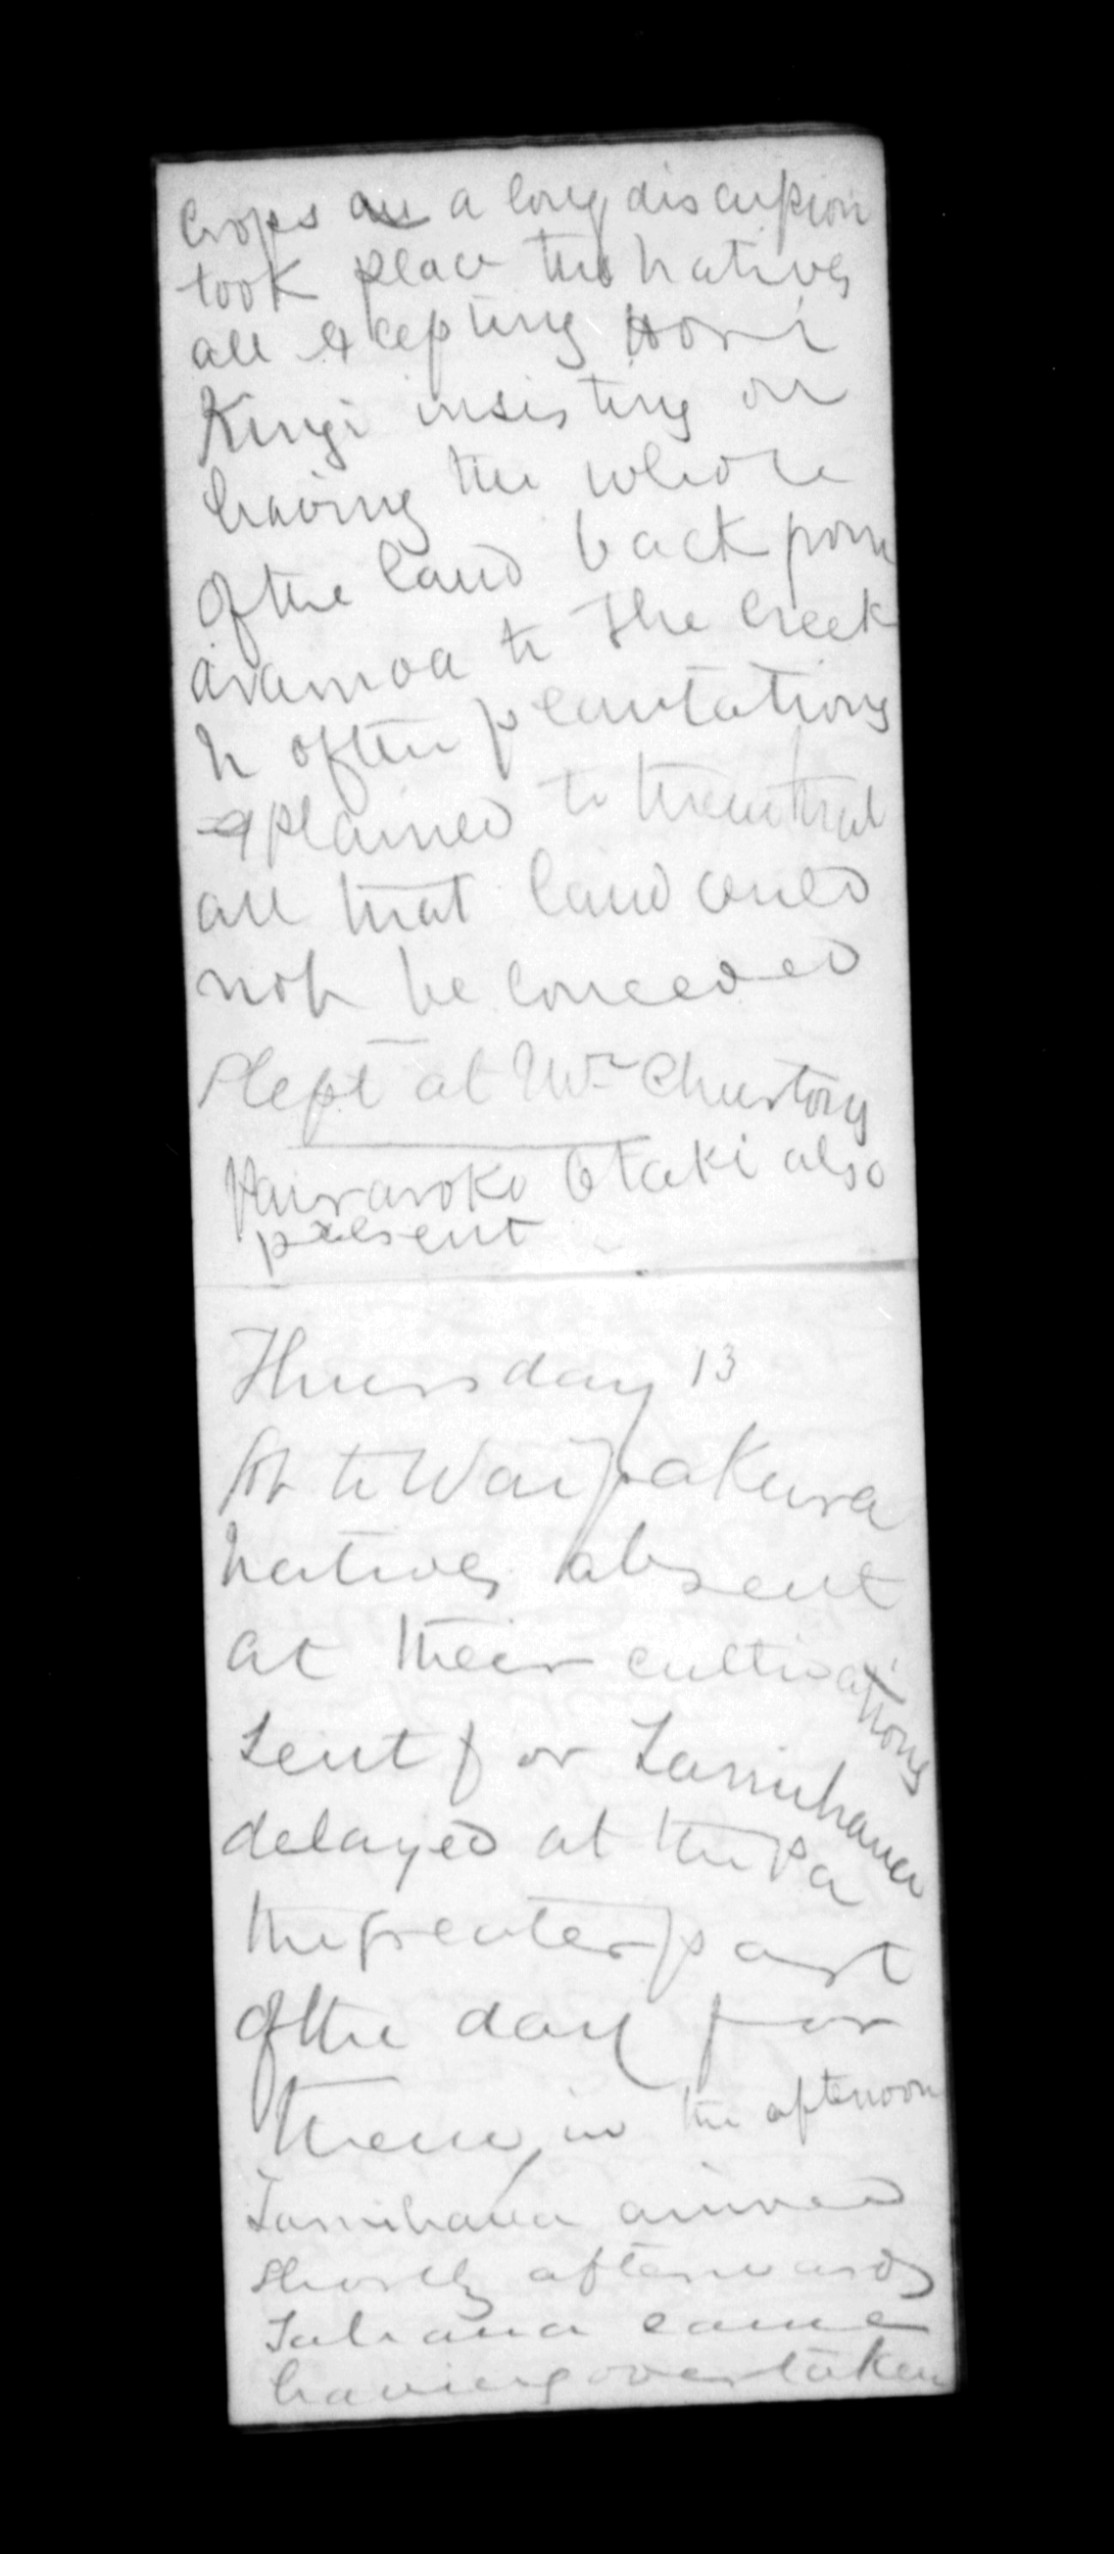 crops a long discussion
took place the natives
all excepting Hori
Kingi insisting on
having the whole
of the land back from
aramoa to the creek
N of the plantations
explained to them that
all that land could
not be conceded
Slept at Mr Churtons
Otaki also
present
Thursday 13
to Waipakura
natives absent
at their cultivations
Sent for Tamihana
delayed at the Pa
the greater part
of the day for
them, in the afternoon
Tamihana arrived
shortly afterwards
Tahana came
having overtaken